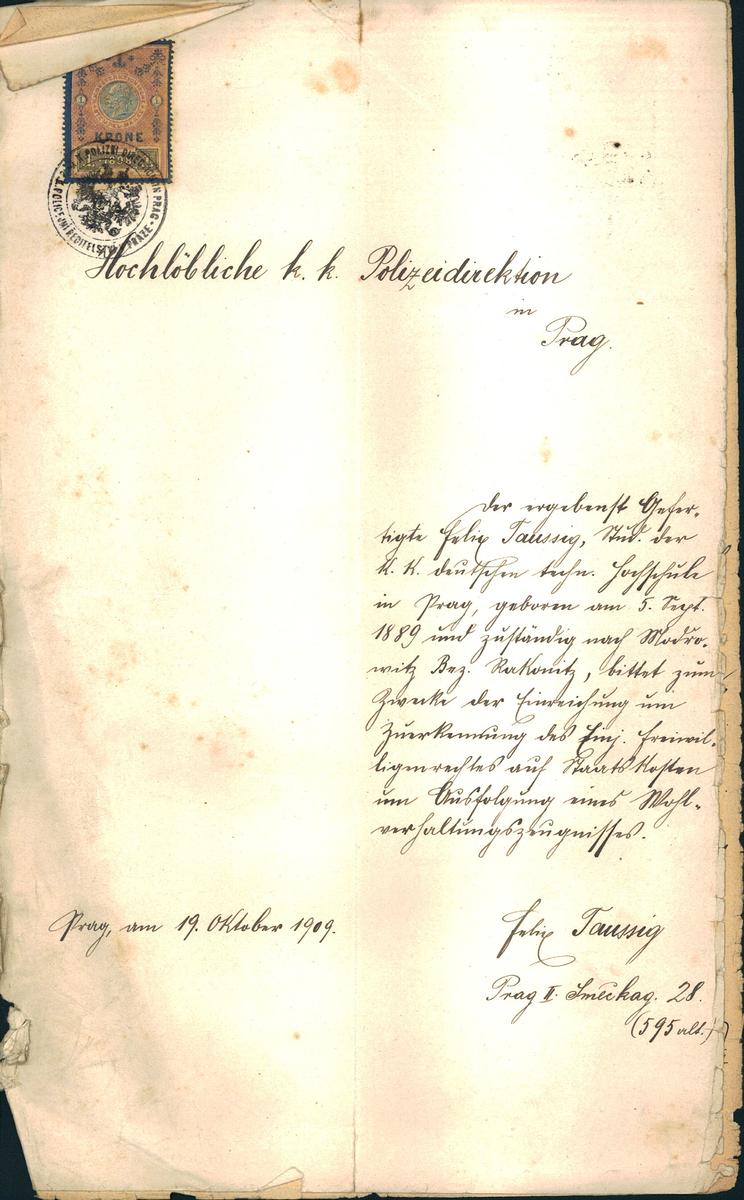 1
KRONE
K. K. POLIZEI DIRECTION IN PRAG
POLICEJNÍ ŘEDITELSTVÍ PRAZE
Hochlöbliche k. k. Polizeidirektion
in
Prag.
Der ergebenst Gefer-
tigte Felix Taussig, Stud. der
k. k. deutschen techn. Hochschule
in Prag, geboren am 5. Sept.
1889 und zuständig nach Modro-
witz Bez. Rakonitz, bittet zum
Zwecke der Einreichung um
Zuerkennung des Einj. Freiwil-
ligenrechtes auf Staatskosten
um Ausfolgung eines Wohl-
verhaltungszeugnisses.
Prag, am 19. Oktober 1909.
Felix Taussig
Prag II. Smečkag. 28.
(595 alt.)